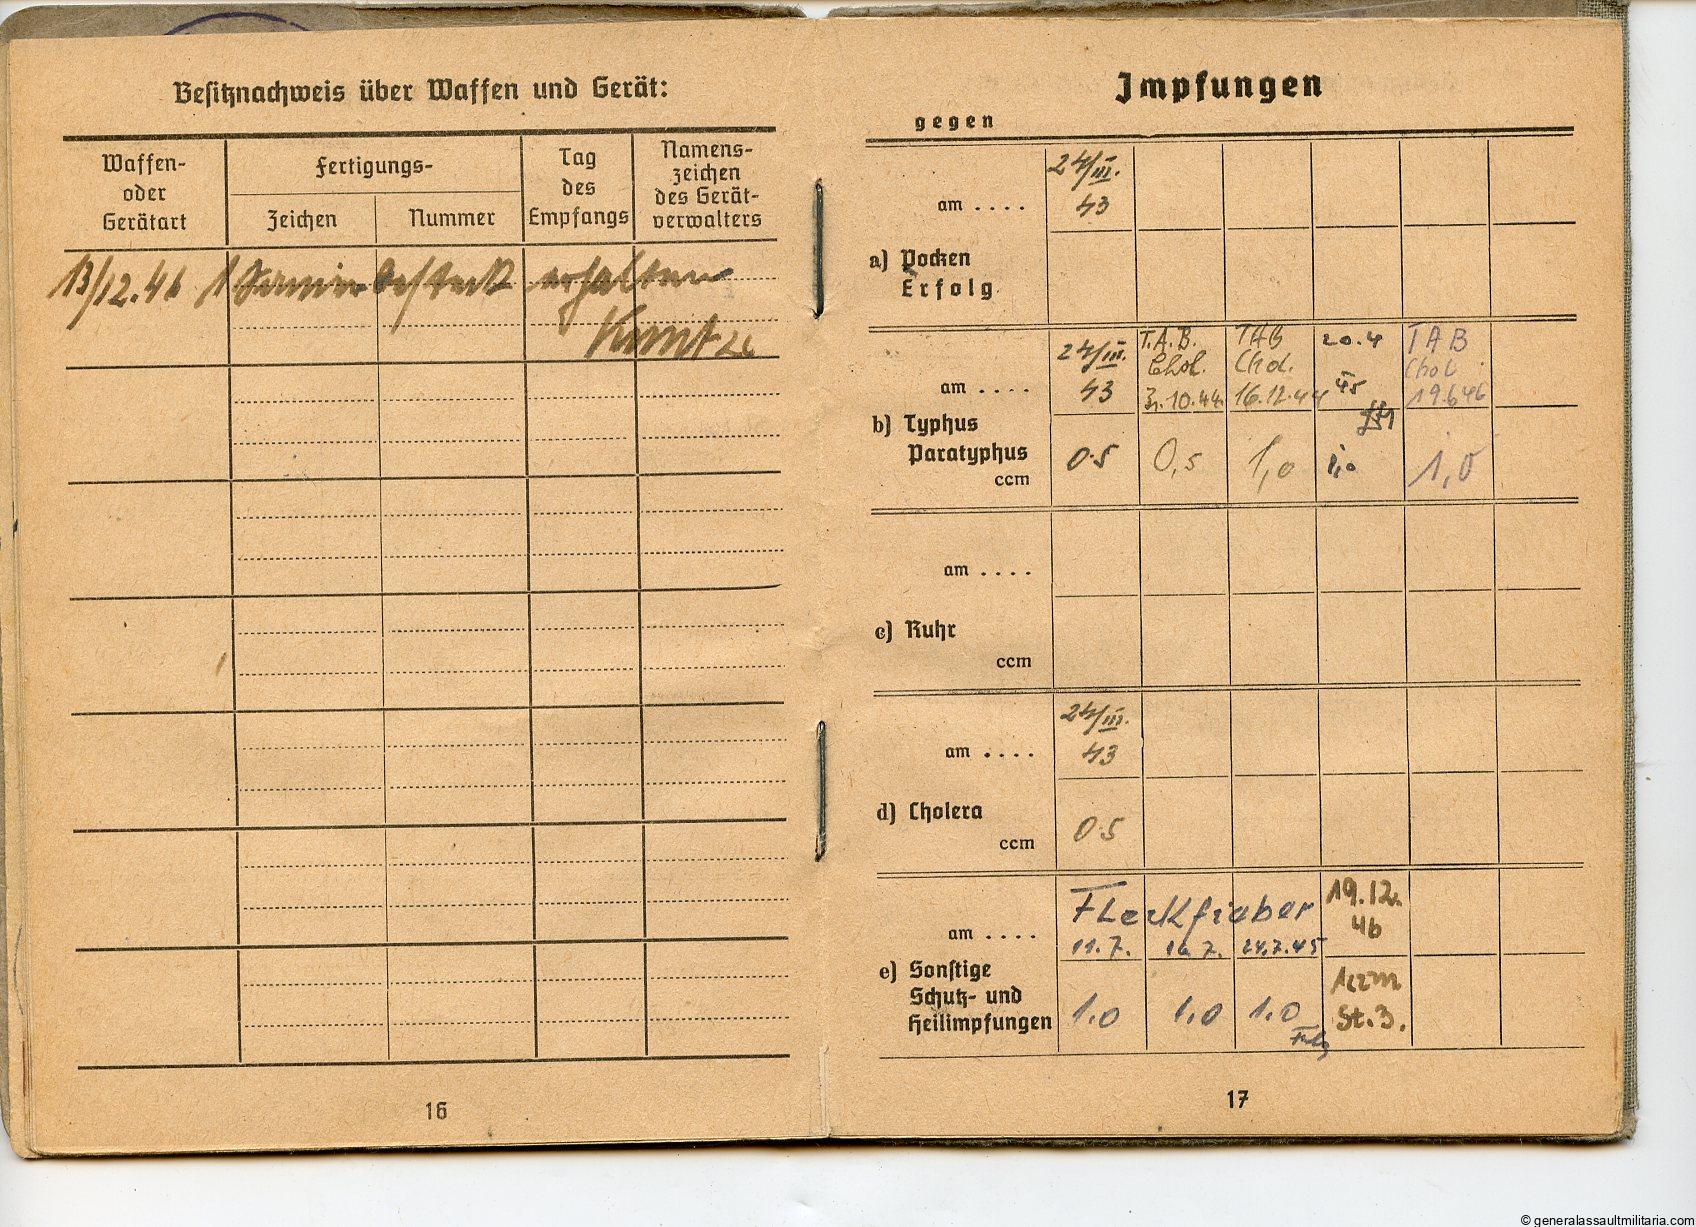 Besitznachweis über Waffen und Gerät:
Waffen-
oder
Gerätart
Fertigungs-
Zeichen
Nummer
Tag
des
Empfangs
Namens-
zeichen
des Gerät-
verwalters
13/12.46 1 erhalten
16
Impfungen
gegen
am ....
24/III.
43
a) Pocken
Erfolg
am ....
24/III.
43
T.A.B.
Chol.
3.10.44.
TAB
Chol.
16.12.44
20.4
45
TAB
Chol
19.6.46
b) Typhus
Paratyphus
ccm
0.5
0,5
1,0
1,0
1,0
am ....
c) Ruhr
ccm
am ....
24/III.
43
d) Cholera
ccm
0.5
am ....
Fleckfieber
11.7.
16.7.
24.7.45
19.12.
46
e) Sonstige
Schutz- und
Heilimpfungen
1.0
1.0
1.0
1ccm
St.3.
17
© generalassaultmilitaria.com